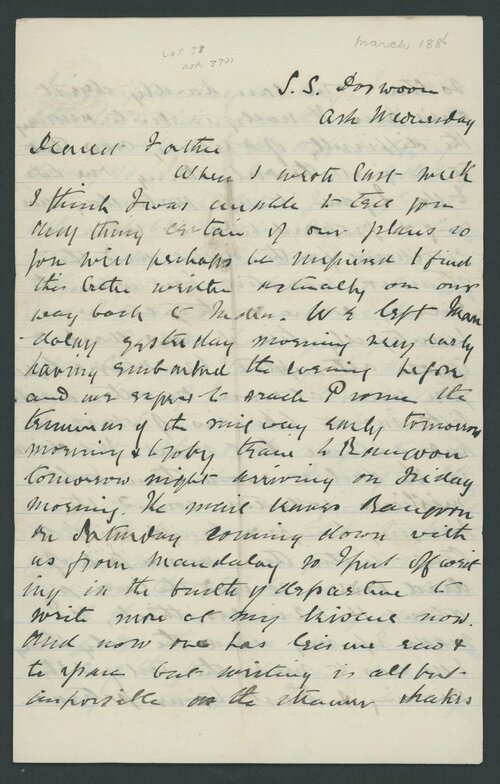 March 1886
Lot 33
S.S. Doowoon
Ash Wednesday
Dearest Father
When I wrote last week
I think I was unable to tell you
any thing certain of our plans so
you will perhaps be surprised to find
this letter written actually on our
way back to India. We left Man
dalay yesterday morning very early
having embarked the evening before
and we expect to reach Prome the
terminus of the railway early tomorrow
morning & go by train to Rangoon
tomorrow night arriving on Friday
morning. The mail leaves Rangoon
on Saturday coming down with
us from Mandalay so I put off writ
ing in the bustle of departure to
write more at my leisure now.
And now one has leisure
to spare but writing is all but
impossible the steamer shakes